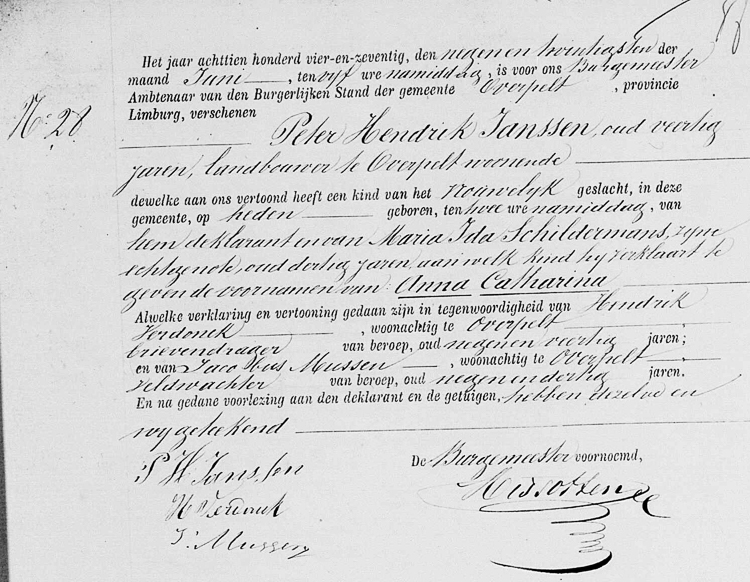 No 28
Het jaar achttien honderd vier-en-zeventig, den negen en twintigsten der
maand Juni, ten vyf ure namiddag, is voor ons Burgemeester
Ambtenaar van den Burgerlijken Stand der gemeente Overpelt, provincie
Limburg, verschenen
Peter Hendrik Janssen, oud veertig
jaren, landbouwer te Overpelt woonende
dewelke aan ons vertoond heeft een kind van het vrouwelyk geslacht, in deze
gemeente, op heden geboren, ten twee ure namiddag, van
hem deklarant en van Maria Ida Schildermans, zyne
echtgenote, oud dertig jaren, aan welk kind hy verklaart te
geven de voornamen van Anna Catharina
Alwelke verklaring en vertooning gedaan zijn in tegenwoordigheid van Hendrik
Verdonck, woonachtig te Overpelt
brievendrager van beroep, oud negen en veertig jaren;
en van Jacobus Mussen, woonachtig te Overpelt
veldwachter van beroep, oud negen en dertig jaren.
En na gedane voorlezing aan den deklarant en de getuigen, hebben dezelve en
wy geteekend
De Burgemeester voornoemd,
P H Janssen
H Verdonck
J. Mussen